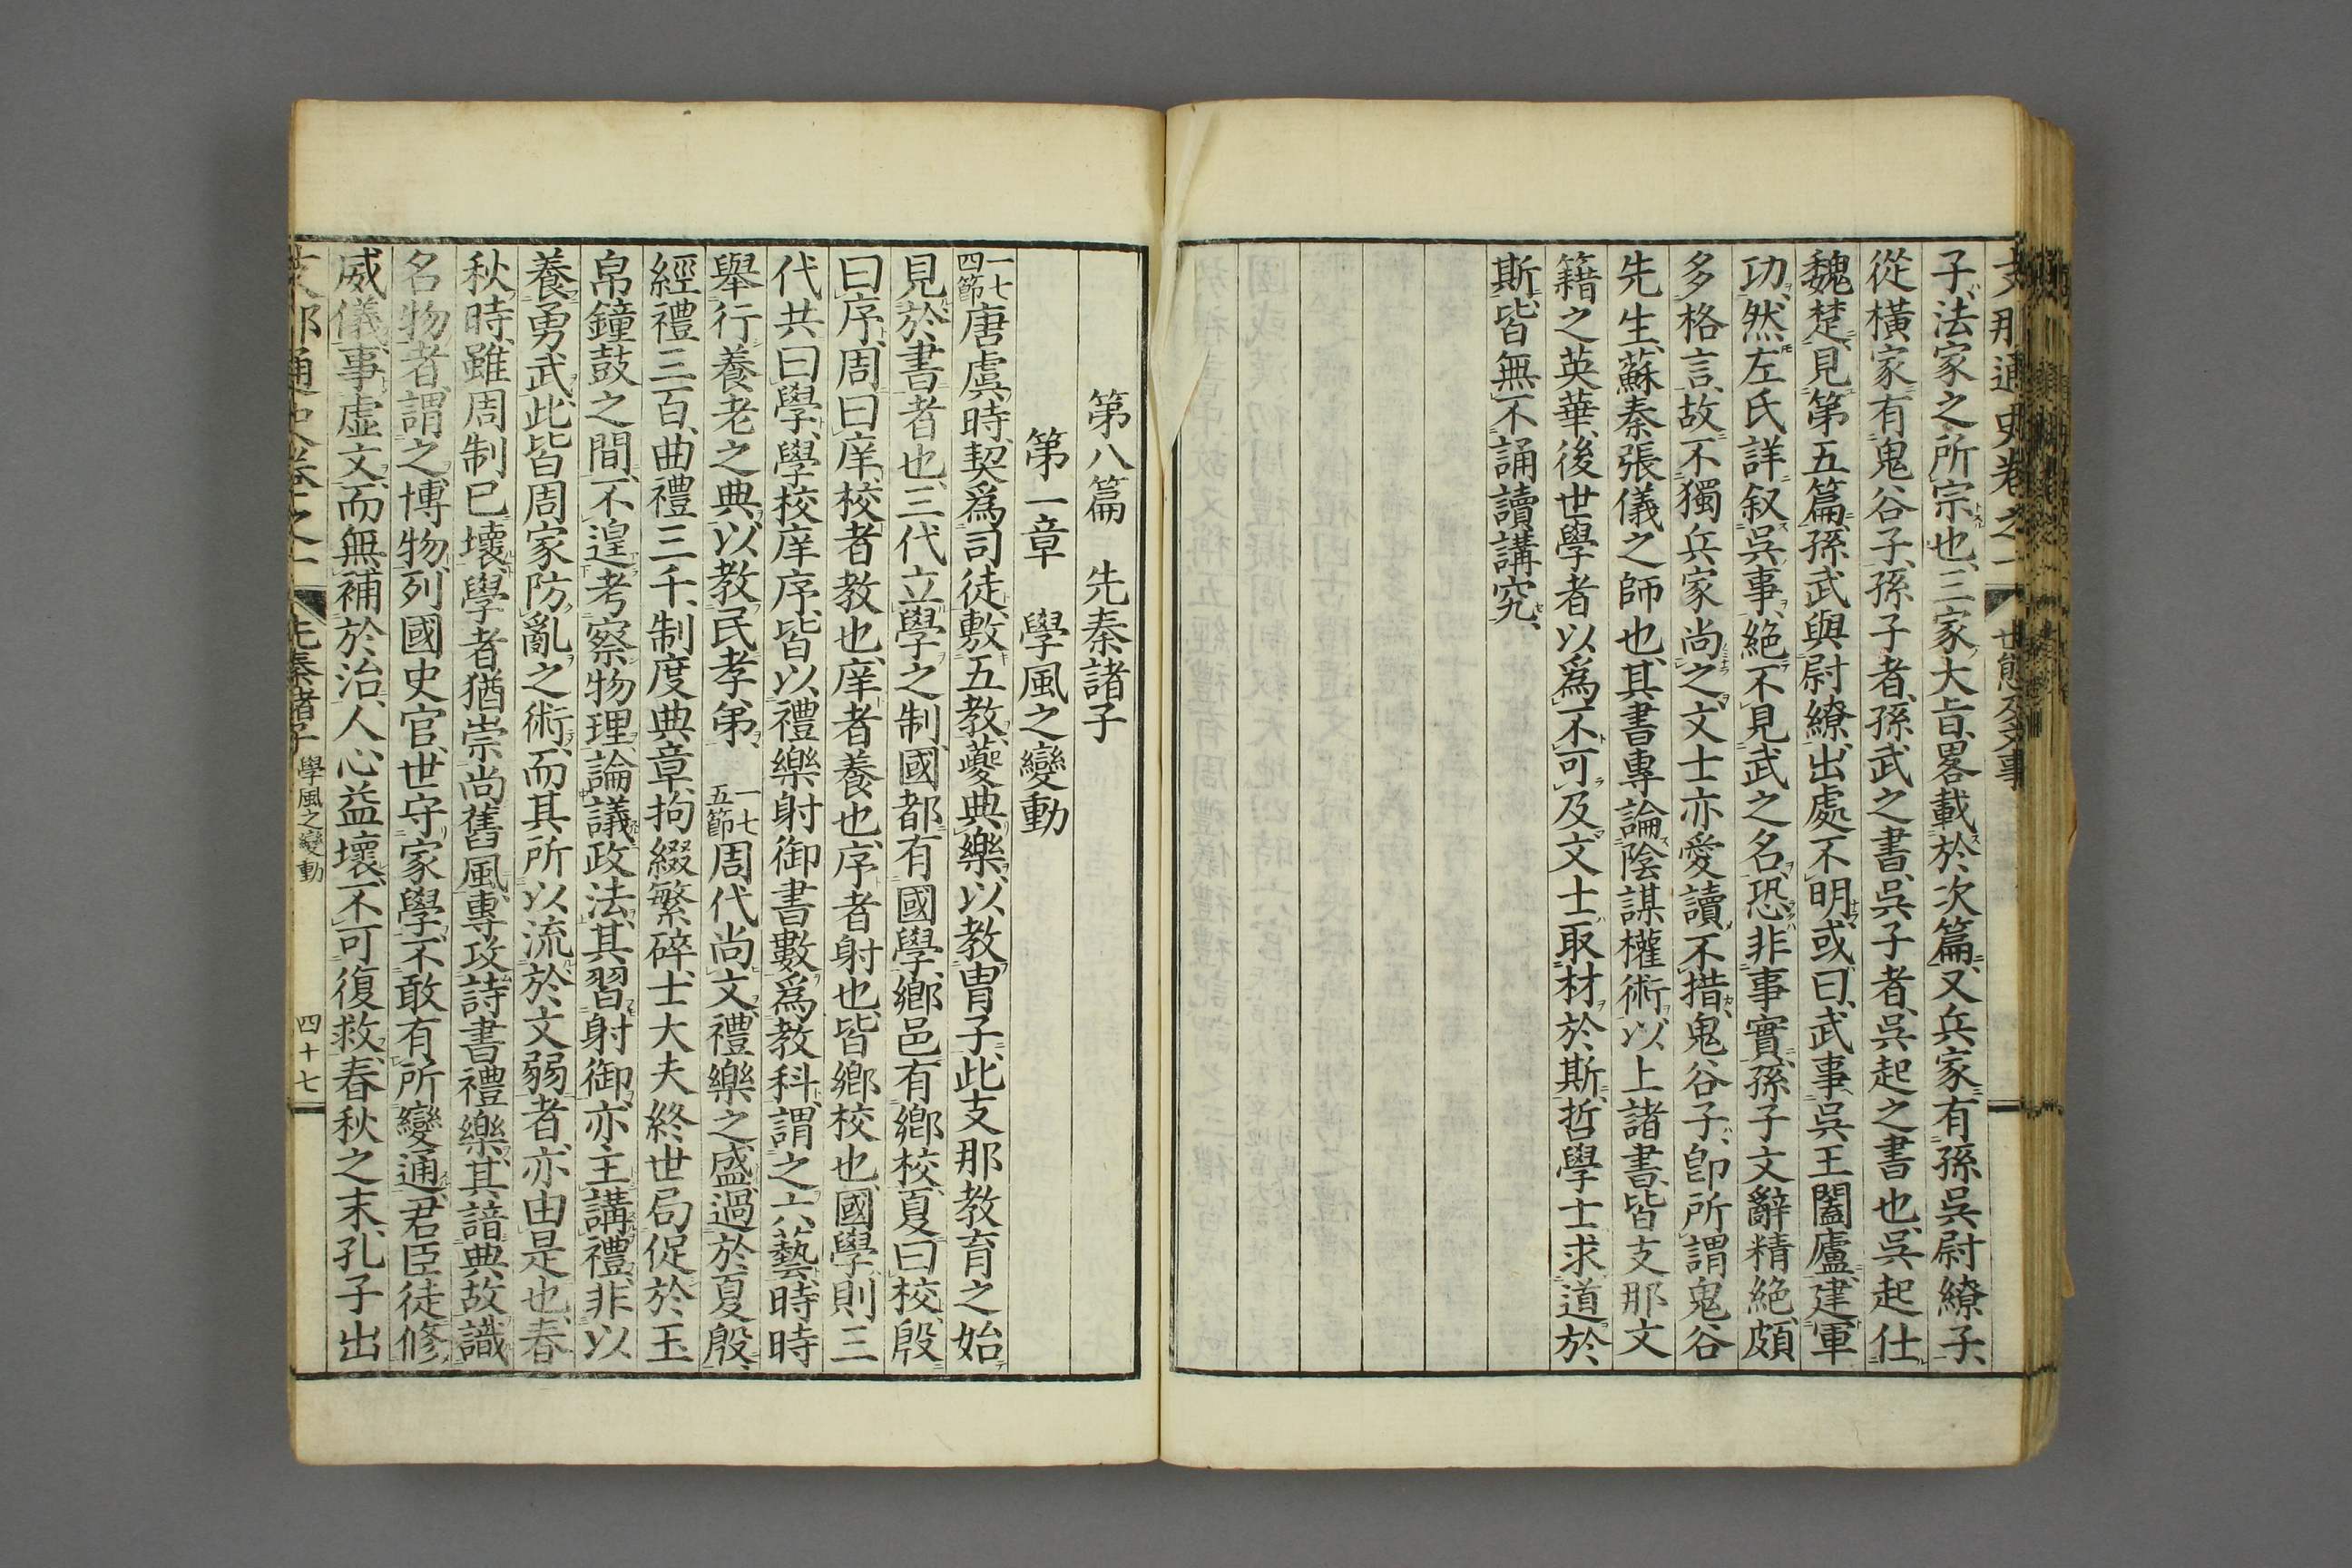 支那通史卷之一 世態及文事
子、法家之所宗也、三家大旨、畧載於次篇、又兵家有孫吳尉繚子、
從橫家有鬼谷子、孫子者、孫武之書、吳子者、吳起之書也、吳起仕
魏楚、見第五篇、孫武與尉繚、出處不明、或曰、武事吳王闔廬、建軍
功、然左氏詳叙吳事、絕不見武之名、恐非事實、孫子文辭精絕、頗
多格言、故不獨兵家尚之、文士亦愛讀不措、鬼谷子、卽所謂鬼谷
先生、蘇秦張儀之師也、其書專論陰謀權術、以上諸書、皆支那文
籍之英華、後世學者以爲不可及、文士取材於斯、哲學士求道於
斯、皆無不誦讀講究、
第八篇 先秦諸子
第一章 學風之變動
一七四節 唐虞時、契爲司徒、敷五教、夔典樂、以教胄子、此支那教育之始
見於書者也、三代立學之制、國都有國學、鄕邑有鄕校、夏曰校、殷
曰序、周曰庠、校者教也、庠者養也、序者射也、皆鄕校也、國學則三
代共曰學、學校庠序、皆以禮樂射御書數爲教科、謂之六藝、時時
舉行養老之典、以教民孝弟、 一七五節 周代尚文、禮樂之盛、過於夏殷、
經禮三百、曲禮三千、制度典章、拘綴繁碎、士大夫終世局促於玉
帛鐘鼓之間、不遑考察物理、論議政法、其習射御、亦主講禮、非以
養勇武、此皆周家防亂之術、而其所以流於文弱者、亦由是也、春
秋時、雖周制已壞、學者猶崇尚舊風、專攻詩書禮樂、其諳典故、識
名物者、謂之博物、列國史官、世守家學、不敢有所變通、君臣徒修
威儀、事虛文、而無補於治、人心益壞、不可復救、春秋之末、孔子出
支那通史卷之一 先秦諸子 學風之變動 四十七